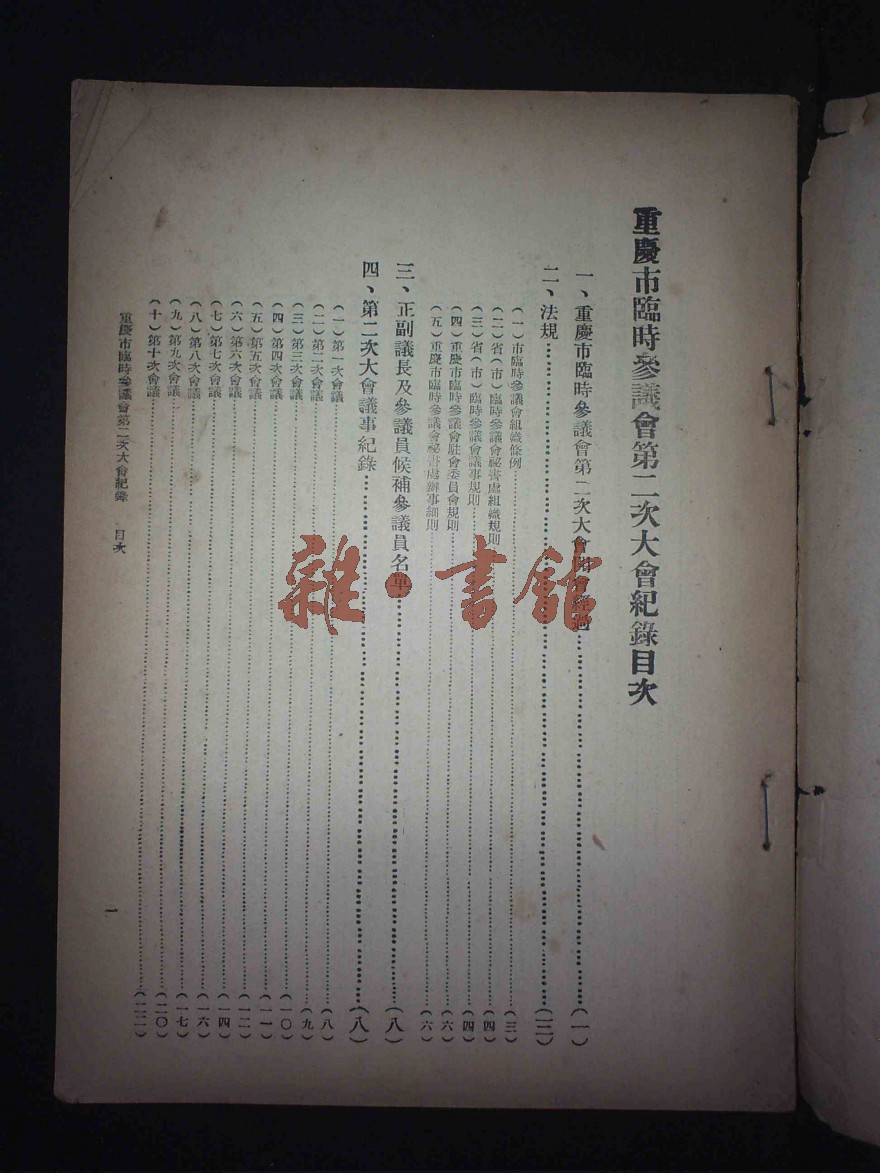 重慶市臨時參議會第二次大會紀錄目次
一、重慶市臨時參議會第二次大會開會經過……(一)
二、法規……(三)
(一)市臨時參議會組織條例……(三)
(二)省(市)臨時參議會祕書處組織規則……(四)
(三)省(市)臨時參議會議事規則……(四)
(四)重慶市臨時參議會駐會委員會規則……(六)
(五)重慶市臨時參議會祕書處辦事細則……(六)
三、正副議長及參議員候補參議員名單……(八)
四、第二次大會議事紀錄……(八)
(一)第一次會議……(八)
(二)第二次會議……(九)
(三)第三次會議……(一〇)
(四)第四次會議……(一一)
(五)第五次會議……(一二)
(六)第六次會議……(一四)
(七)第七次會議……(一六)
(八)第八次會議……(一七)
(九)第九次會議……(二〇)
(十)第十次會議……(二二)
重慶市臨時參議會第二次大會紀錄 目次
一
雜·書館